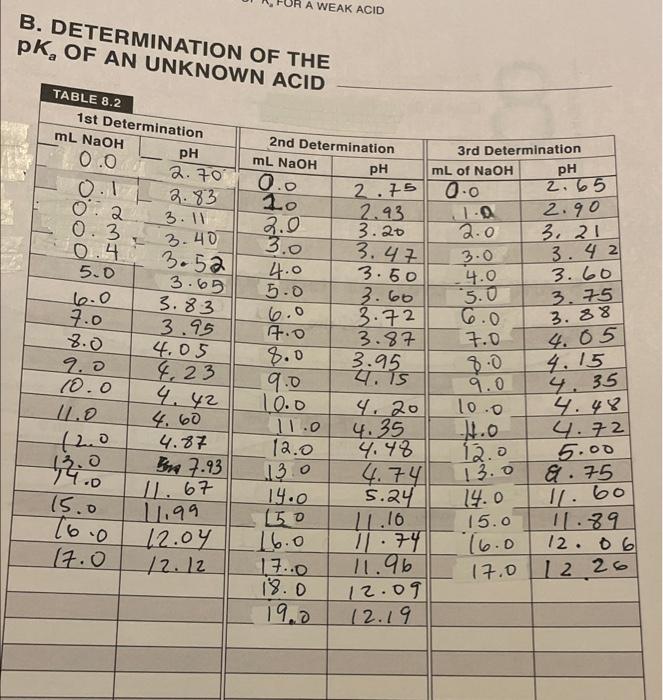 FOR A WEAK ACID
B. DETERMINATION OF THE
pKa OF AN UNKNOWN ACID
TABLE 8.2
1st Determination 2nd Determination 3rd Determination
mL NaOH pH mL NaOH pH mL of NaOH pH
0.0 2.70 0.0 2.75 0.0 2.65
0.1 2.83 1.0 2.93 1.0 2.90
0.2 3.11 2.0 3.20 2.0 3.21
0.3 3.40 3.0 3.47 3.0 3.42
0.4 3.52 4.0 3.50 4.0 3.60
5.0 3.65 5.0 3.60 5.0 3.75
6.0 3.83 6.0 3.72 6.0 3.88
7.0 3.95 7.0 3.87 7.0 4.05
8.0 4.05 8.0 3.95 8.0 4.15
9.0 4.23 9.0 4.15 9.0 4.35
10.0 4.42 10.0 4.20 10.0 4.48
11.0 4.60 11.0 4.35 11.0 4.72
12.0 4.87 12.0 4.48 12.0 5.00
13.0 7.93 13.0 4.74 13.0 8.75
14.0 11.67 14.0 5.24 14.0 11.60
15.0 11.99 15.0 11.10 15.0 11.89
16.0 12.04 16.0 11.74 16.0 12.06
17.0 12.12 17.0 11.96 17.0 12.26
18.0 12.09
19.0 12.19